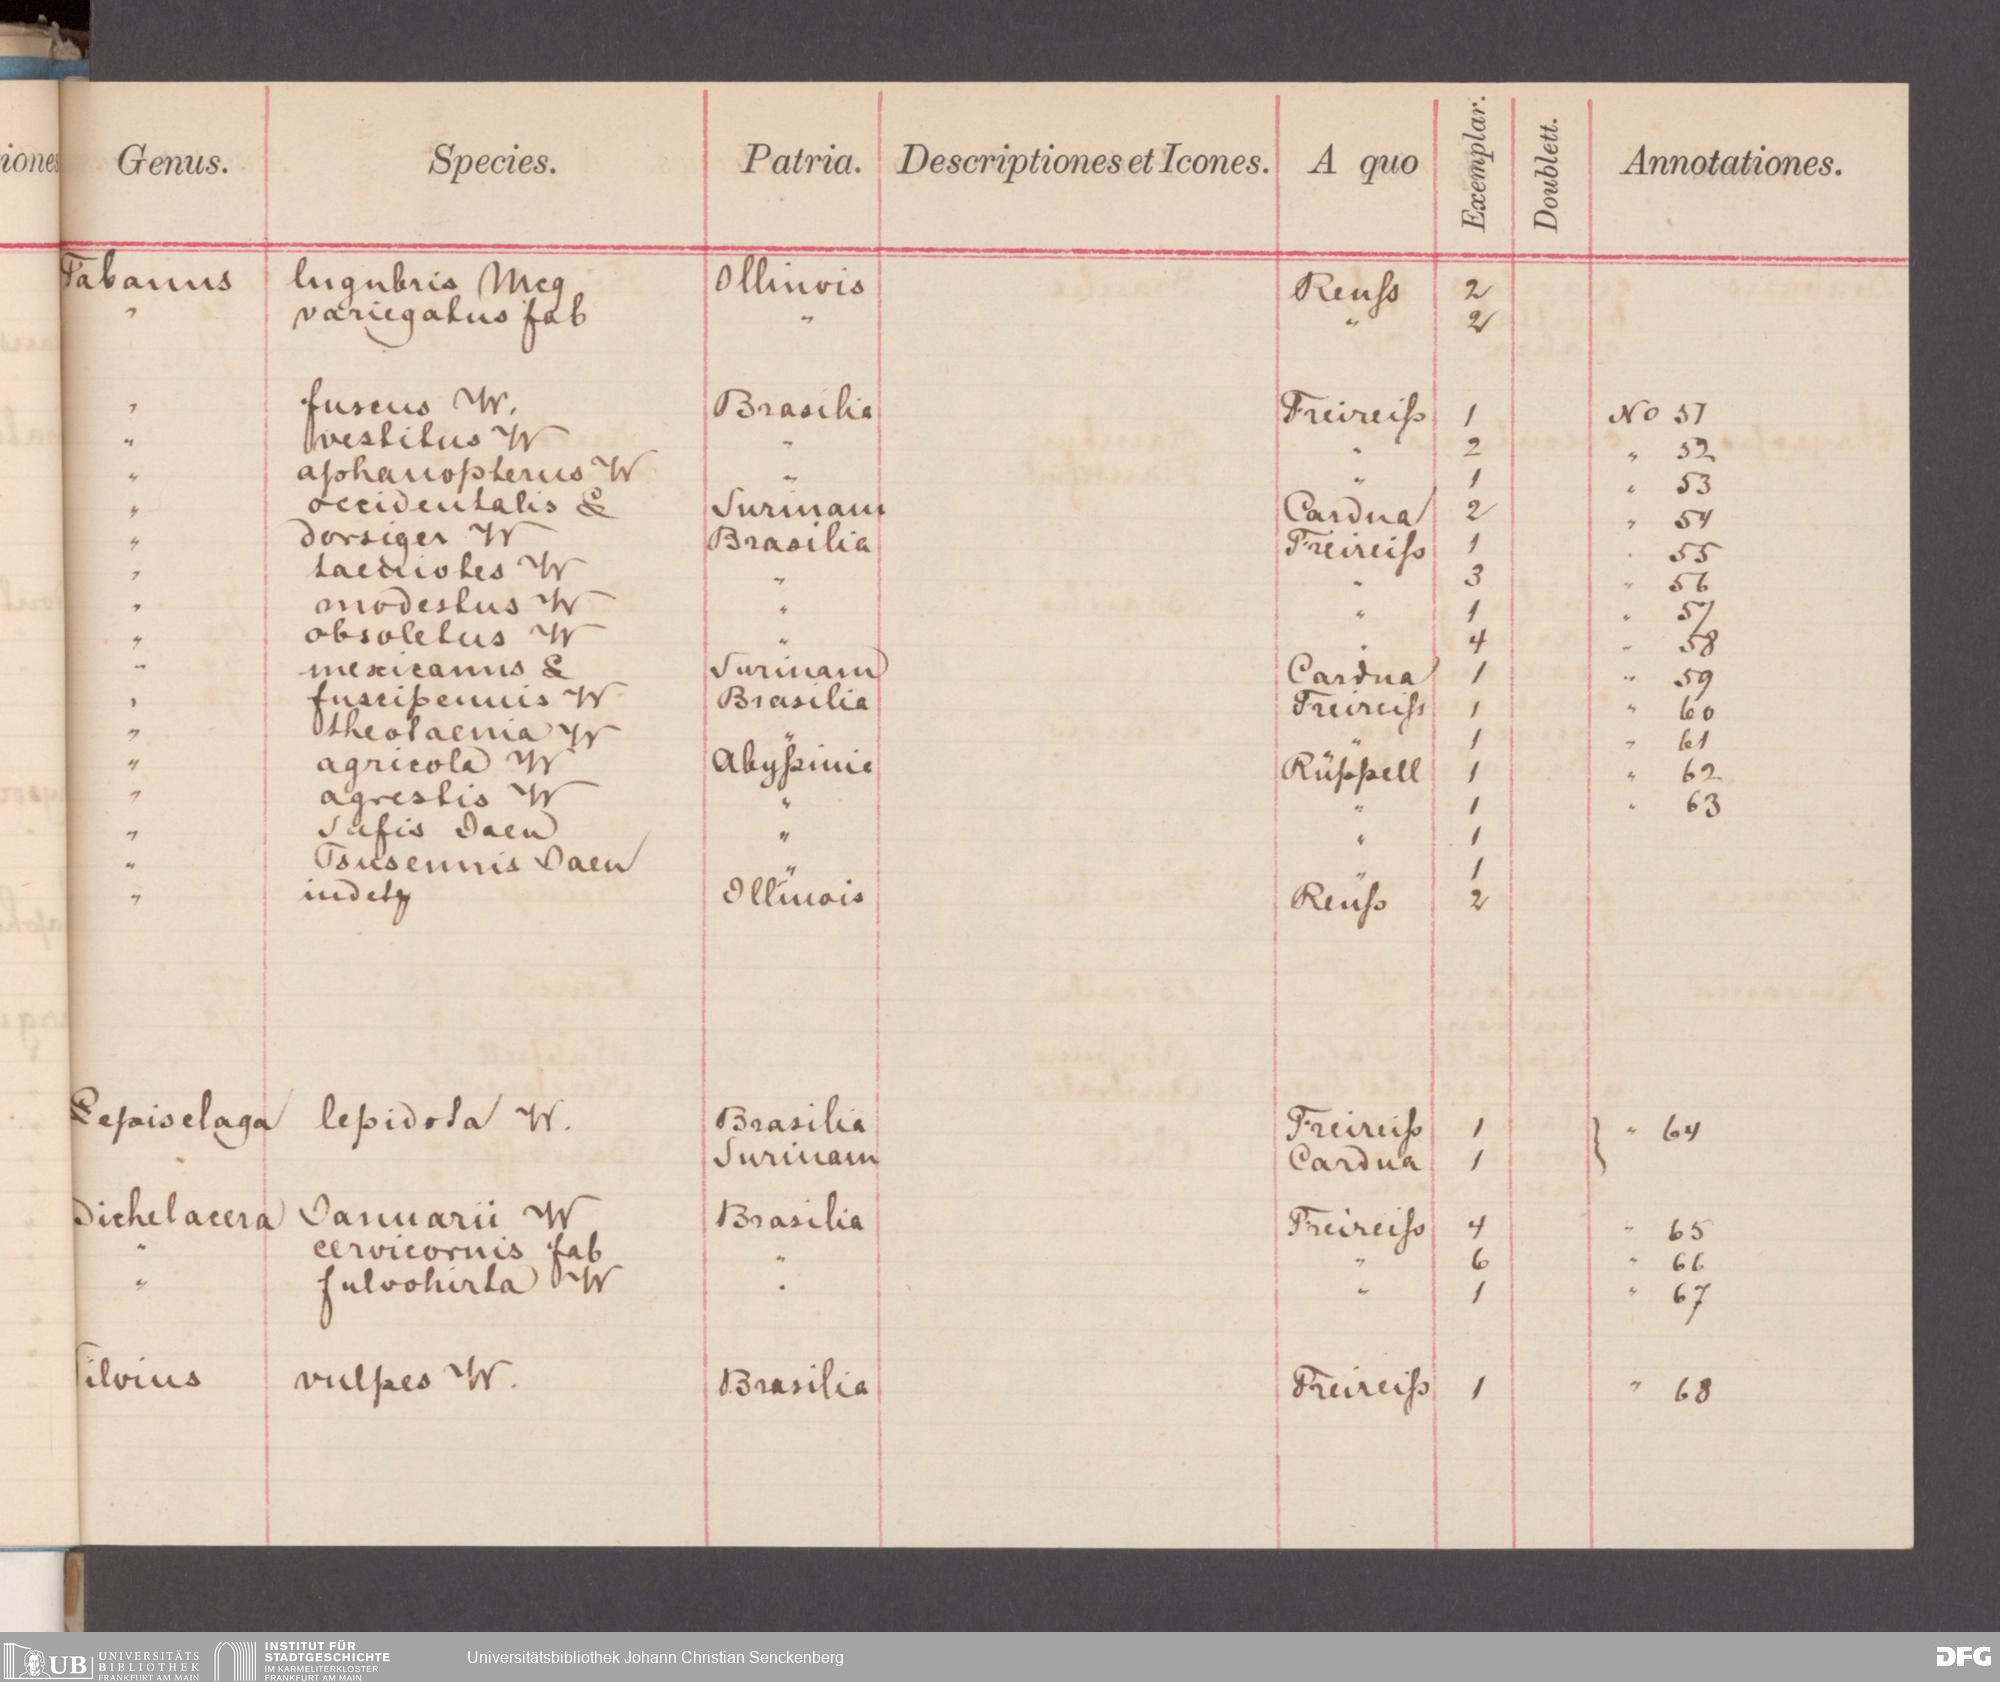 iones
Genus. Species. Patria. Descriptiones et Icones. A quo Exemplar. Doublett. Annotationes.
Tabanus lugubris Mcq Illinois Reuss 2
" variegatus fab " " 2
" fuscus W. Brasilia Freireiss 1 No 51
" vestitus W " " 2 " 52
" aphanopterus W " " 1 " 53
" occidentalis L Surinam Cardua 2 " 54
" dorsiger W Brasilia Freireiss 1 " 55
" taeniotes W " " 3 " 56
" modestus W " " 1 " 57
" obsoletus W " " 4 " 58
" mexicanus L Surinam Cardua 1 " 59
" fuscipennis W Brasilia Freireiss 1 " 60
" theotaenia W " " 1 " 61
" agricola W Abyssinie Rüppell 1 " 62
" agrestis W " " 1 " 63
" Sufis Jaen " " 1
" Tsusennis Jaen " " 1
" Illinois Reuss 2
Lepiselaga lepidota W. Brasilia Freireiss 1 } " 64
Surinam Cardua 1
Dichelacera Januarii W Brasilia Freireiss 4 " 65
" cervicornis fab " " 6 " 66
" fulvohirta W " " 1 " 67
Silvius vulpes W. Brasilia Freireiss 1 " 68
UB UNIVERSITÄTS BIBLIOTHEK FRANKFURT AM MAIN
INSTITUT FÜR STADTGESCHICHTE IM KARMELITERKLOSTER FRANKFURT AM MAIN
Universitätsbibliothek Johann Christian Senckenberg
DFG